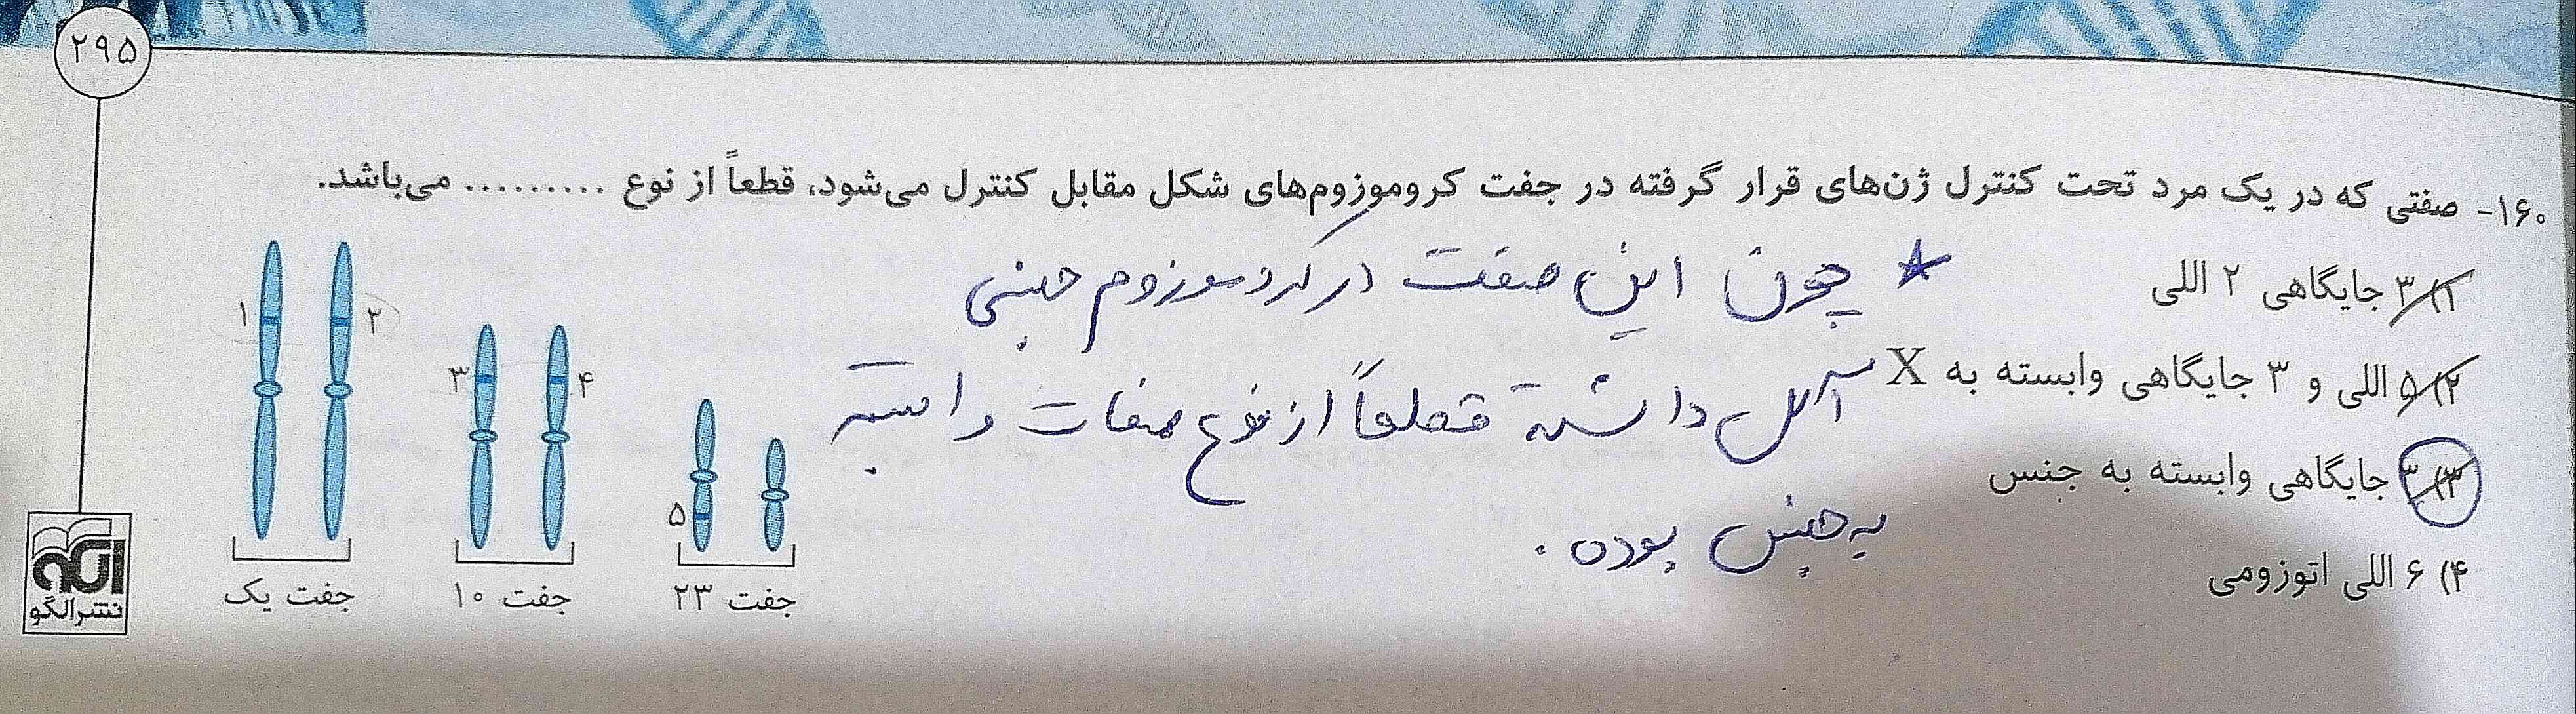 ۲۹۵
۱۶۰- صفتی که در یک مرد تحت کنترل ژن‌های قرار گرفته در جفت کروموزوم‌های شکل مقابل کنترل می‌شود، قطعاً از نوع ......... می‌باشد.
۱) ۳ جایگاهی ۲ اللی
* چون این صفت در کروموزوم جنسی
۲) ۵ اللی و ۳ جایگاهی وابسته به X
آلل داشته قطعاً از نوع صفات وابسته
۳) ۳ جایگاهی وابسته به جنس
به جنس بوده.
۴) ۶ اللی اتوزومی
۱ ۲
۳ ۴
۵
جفت یک جفت ۱۰ جفت ۲۳
الگو
نشرالگو